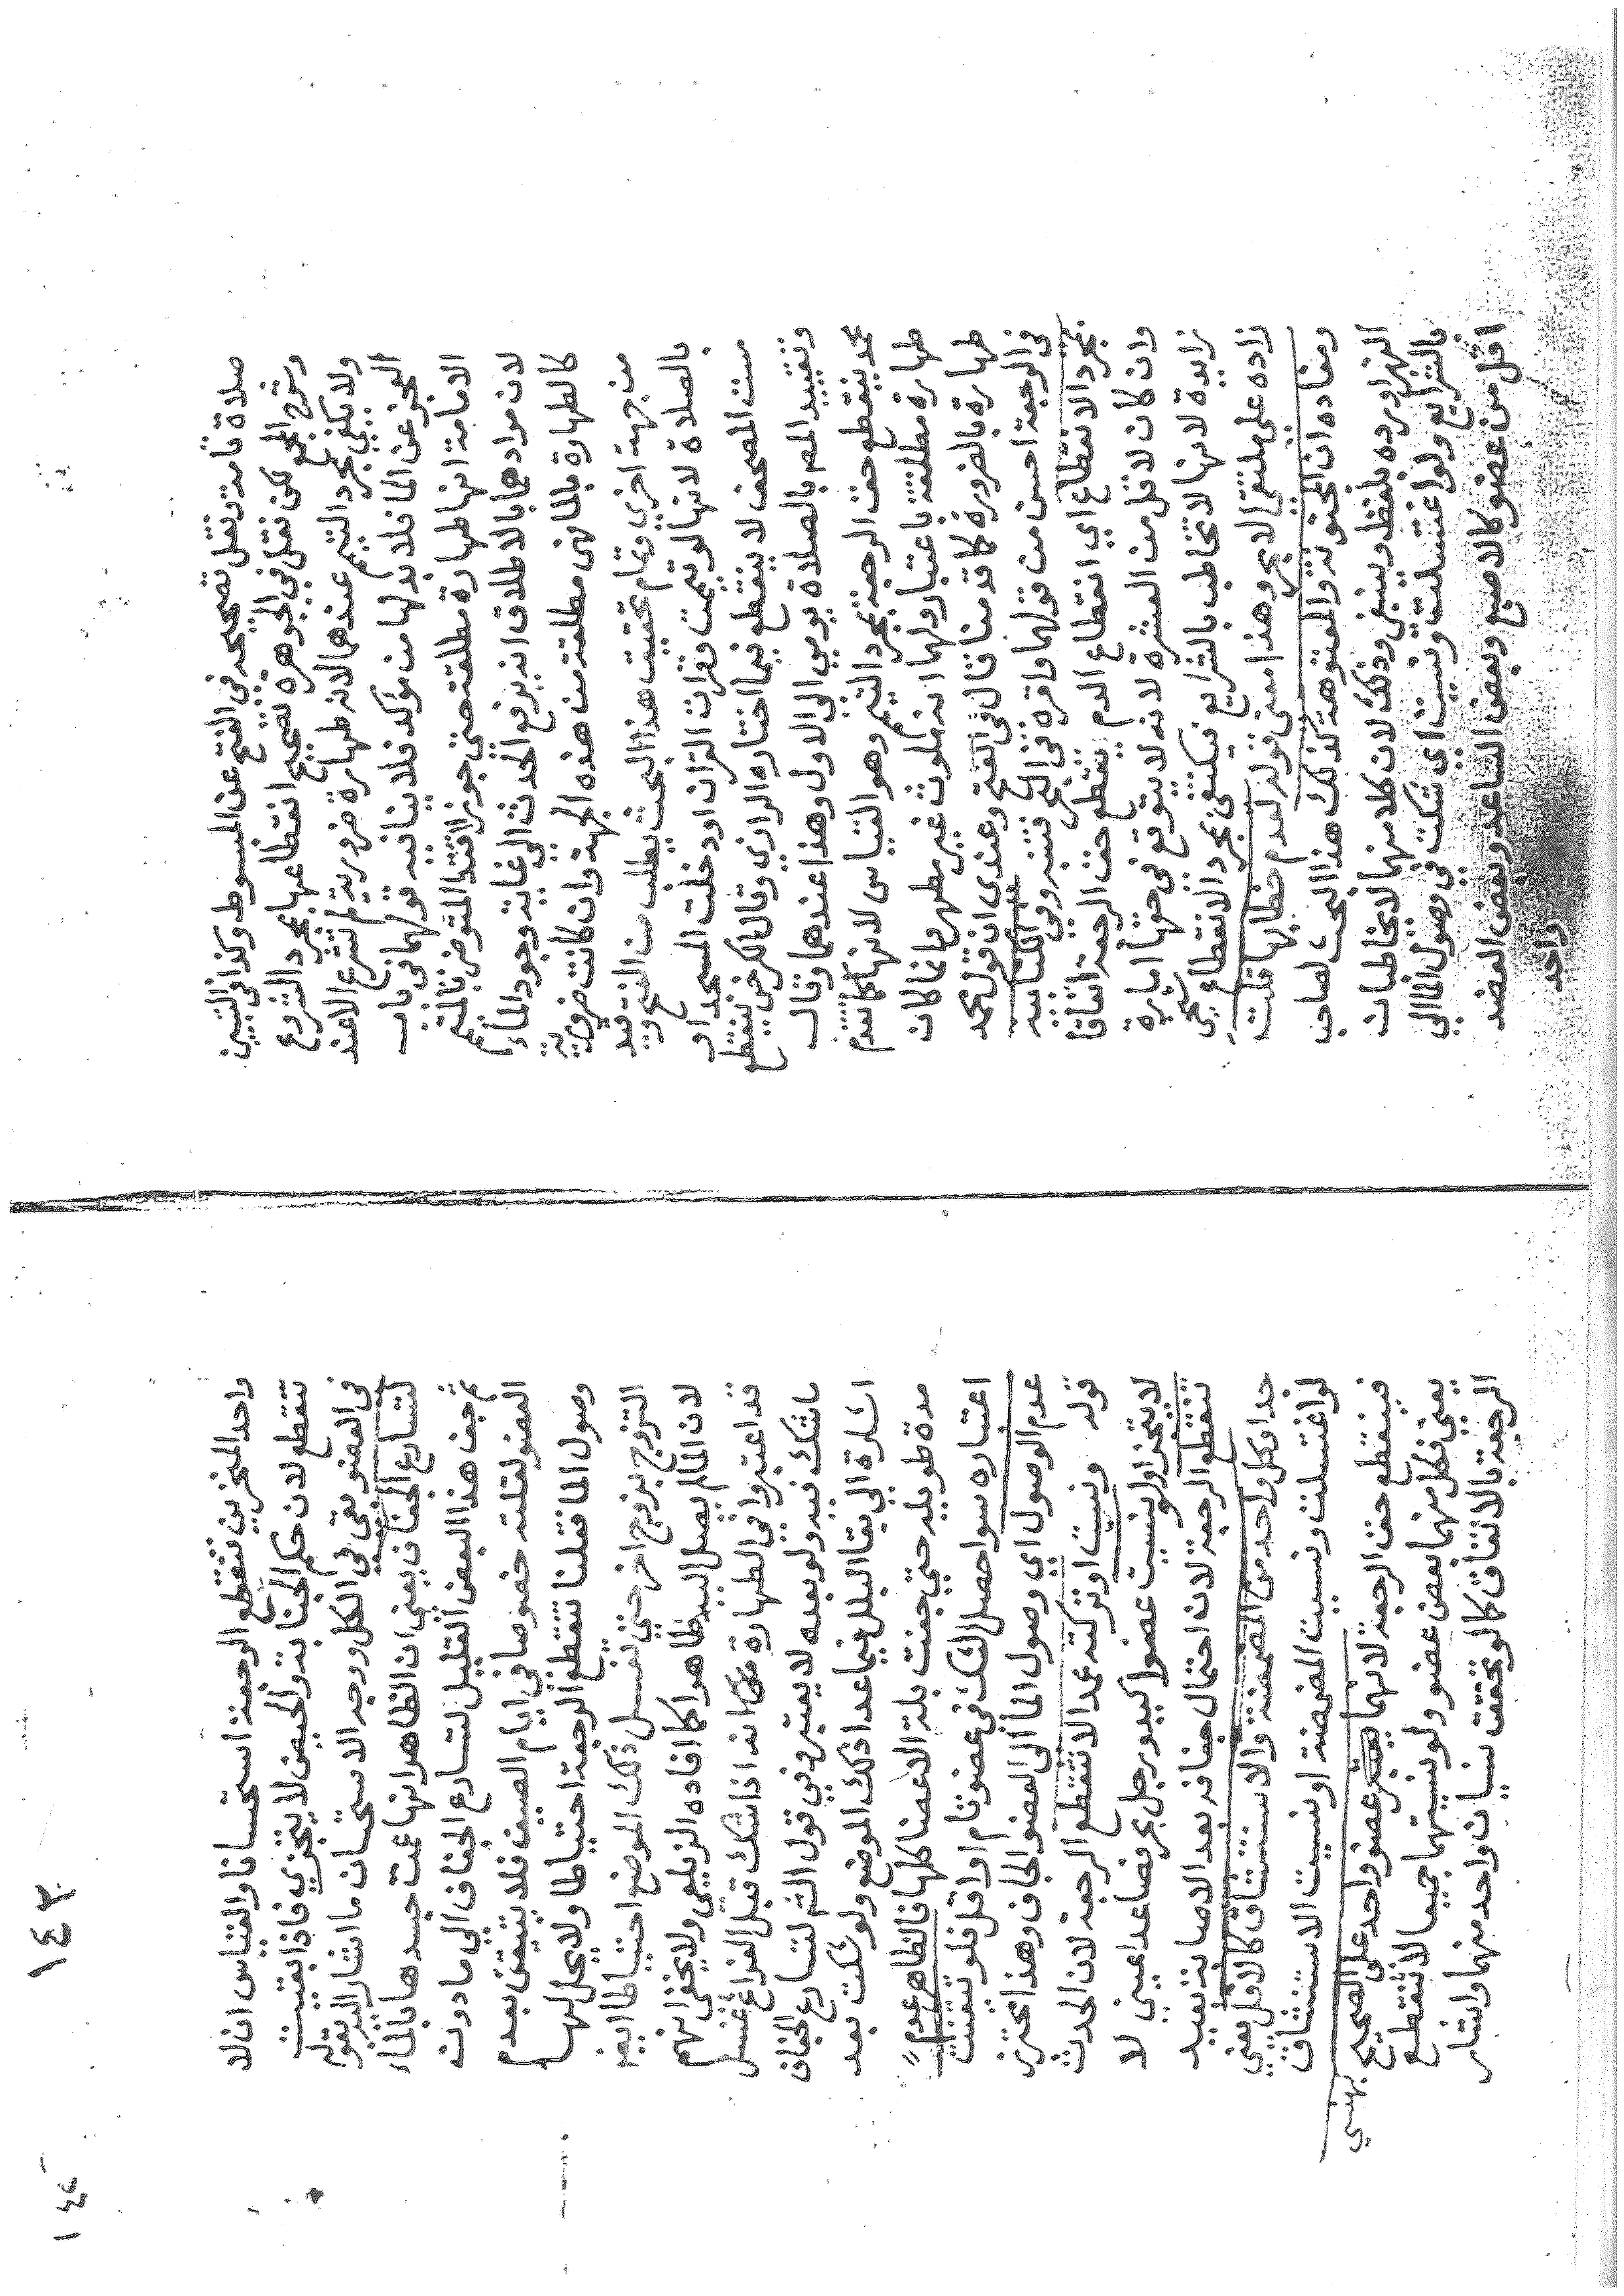 صلاة تامة ونقل تصحيحه في الفتح عن المبسوط وكذا في التبيين
وشرح المجمع لكن نقل في الجوهرة تصحيح انقطاعها بمجرد الشروع
ولا يكفي بمجرد التيمم عندهما لانه طهارة ضرورية لم تشرع الا عند
العجز عن الما فلا بد لها من مؤكد فلا ينافيه قولهما في باب
الامامة انها طهارة مطلقة حتى جوزا اقتدا المتوضئ بالمتيمم
لان مرادهما بالاطلاق انه يرفع الحدث الي غاية وجود الماء
كالطهارة بالما فهي مطلقة من هذه الجهة وان كانت ضرورية
من جهة اخري وتمام تحقيق هذا البحث يطلب من الفتح وقيد
بالصلاة لانها لو تيممت وقرات القران او دخلت المسجد او
مست المصحف لا ينقطع فيما اختاره الرازي وقال الكرخي ينقطع
وتقييد المص بالصلاة يومي الي الاول وهذا عندهما وقال
محمد ينقطع حق الرجعة بمجرد التيمم وهو القياس لانها كما تقدم
طهارة مطلقة باعتبار ولهما انه ملوث غير مطهر وانما كان
طهارة بالضرورة كما قدمنا قال في الفتح وعندي ان قول محمد
في الرجعة احسن من قولهما واقره في البحر فتنبه وفي الكتابية
بمجرد الانقطاع اي انقطاع الدم ينقطع حق الرجعة اتفاقا
وان كان لاقل من العشرة لانه لا يتوقع في حقها امارة
زايدة لانها لا تخاطب بالشرايع فيكتفى بمجرد الانقطاع بحر
زاده على ملتقى الابحر وهذا معنى قوله لعدم خطابها قلت
ومفاده ان المجنونة والمعتوهة كذلك هذا البحث لصاحب
النهر اورده بلفظ وينبغي وذلك لان كلا منهما لا يخاطبان
بالشرايع ولو اغتسلت ونسيت اي شكت في وصول الما الي
اقل من عضو كالاصبع وبعض الساعد وبعض العضد
واحد
١٤٣
١٤٤
واحد المنخرين تنقطع الرجعة استحسانا والقياس ان لا
تنقطع لان حكم الجنابة والحيض لا يتجزي فاذا بقيت
في العضو بقي في الكل ووجه الاستحسان ما اشار اليه بقوله
لتسارع الجفاف يعني ان الظاهر انها عمت جسدها بالماء
ثم جف هذا البعض القليل لتسارع الجفاف الي ما دون
العضو لقلته خصوصا في ايام الصيف فلا يتيقن بعدم
وصول الما فقلنا تنقطع الرجعة احتياطا ولا يحل لها
التزوج بزوج اخر حتي تغسل ذلك الموضع احتياطا ايضا
لان الما لم يصل اليه ظاهرا كما افاده الزيلعي ولا يخفى انهم
قد اعتبروا في الطهارة انه اذا شك قبل الفراغ غسل
ما شك فيه ولو بعده لا يعتبر ففي قول الشم لتسارع الجفاف
اشارة الي بقا البلل فيما عدا ذلك الموضع ولو شكت بعد
مدة طويلة حتي جفت بلة الاعضا كلها فالظاهر عدم
اعتباره سوا حصل الشك في عضو تام او اقل فلو تيقنت
عدم الوصول اي وصول الما الى العضو الجاف وهذا محترز
قوله ونسيت او تركته عمدا لا تنقطع الرجعة لان الحدث
لا يتجزا ولو نسيت عضوا كيد ورجل بحر فصاعدا يعني لا
تنقطع الرجعة لان احتمال جفافه بعد الاصابة بعيد
جدا وكل واحد من المضمضة والاستنشاق كالاقل يعني
لو اغتسلت ونسيت المضمضة او نسيت الاستنشاق
فينقطع حق الرجعة لانهما عضو واحد على الصحيح بهنسي
يعني فكل منهما بعض عضو ولو نسيتهما جميعا لا تنقطع
الرجعة بالاتفاق كالو تحققت نسيان واحد منهما واشار